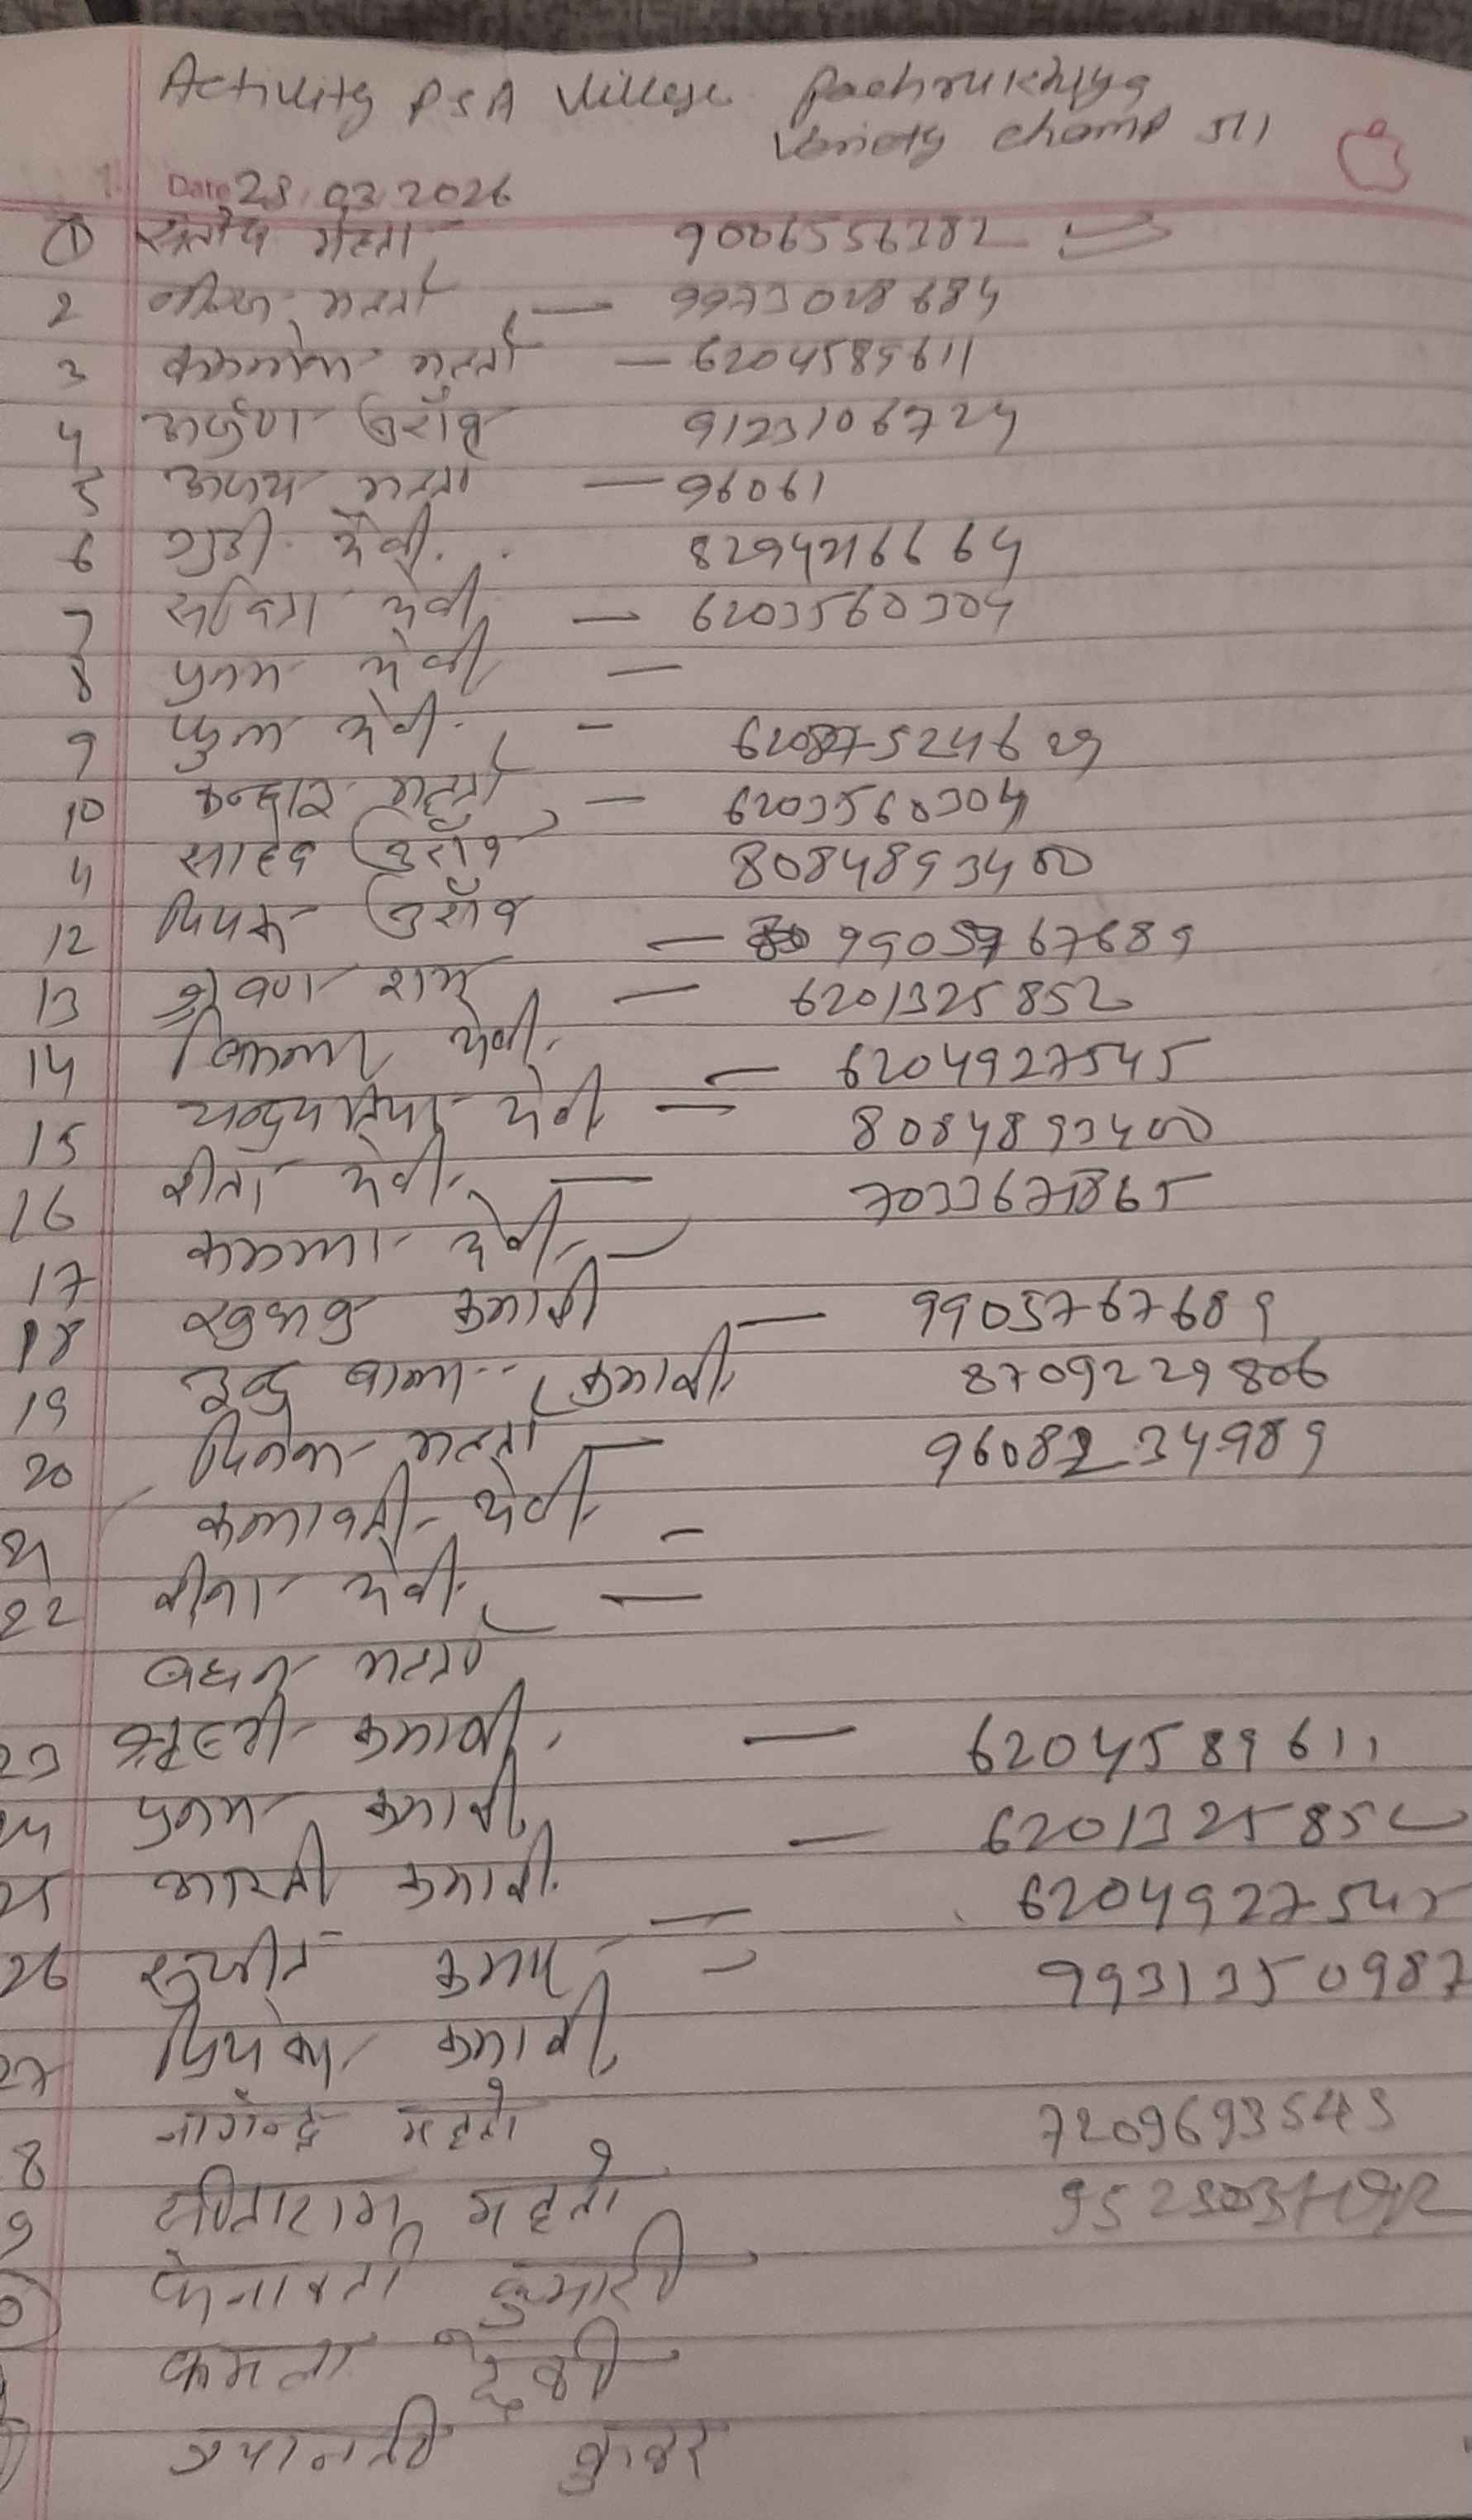 Activity PSA Village Pachrukhiya
Variety Champ 511
Date 28/03/2026
① संतोष मेहता 9006556282
2 महतो — 9973028684
3 कमलेश महतो — 6204589611
4 अर्जुण उराँव 9123106724
5 अजय महतो — 96061
6 गुडी देवी 8294216664
7 सविता देवी — 6203560304
8 पुनम देवी —
9 फुल देवी - 620875241629
10 महतो — 6203560304
11 साहेब उराँव 8084893400
12 दिपक उराँव — 9905767689
13 श्रवण राम — 6201325852
14 विमला देवी — 6204927545
15 देवी = 8084893400
16 रीता देवी — 7033671865
17 कमला देवी —
18 खुशबु कुमारी — 9905767689
19 इन्दु बाला कुमारी 8709229806
20 दिनेश महतो — 9608234989
21 कलावती देवी -
22 रीना देवी —
बुधन महतो
23 कुमारी — 6204589611
24 पुनम कुमारी — 6201325852
25 आरती कुमारी 6204927545
26 सुजीत कुमार = 9931350987
27 प्रियंका कुमारी
8 नागेन्द्र महतो 7209693545
9 सीताराम महतो
कुमारी
कमला देवी
कुंवर